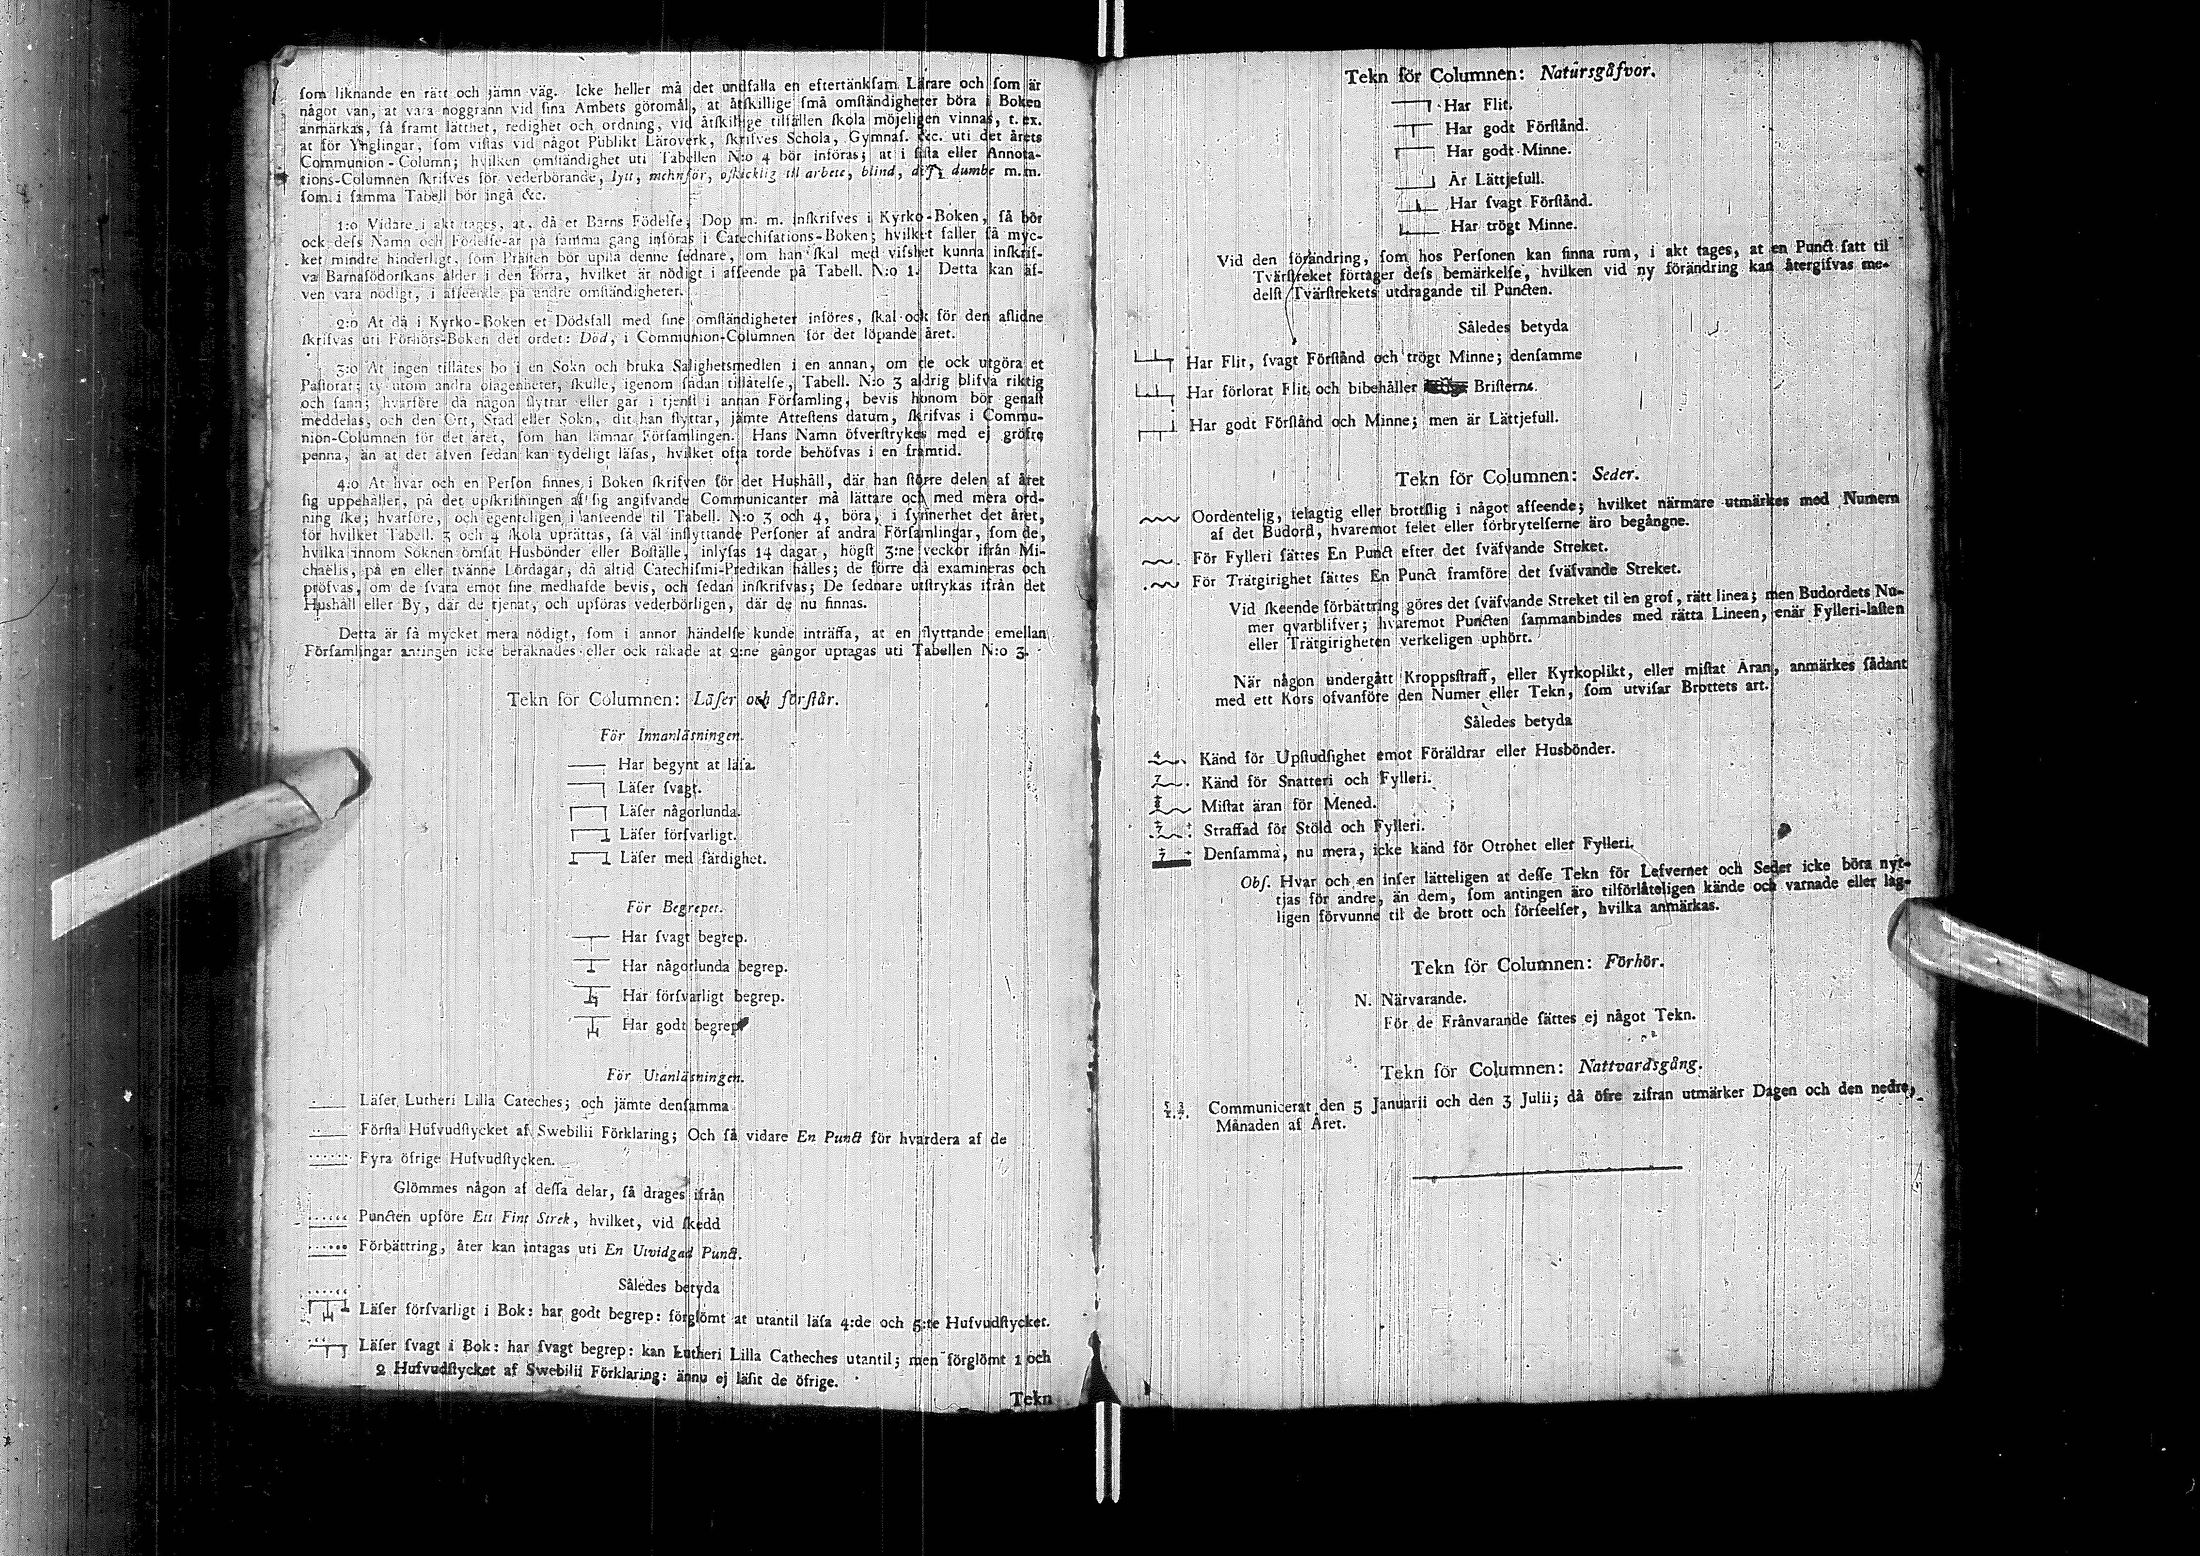 ſom liknande en rätt och jämn väg. Icke heller må det undfalla en eftertänkſam Lärare och ſom är
något van, at vara noggrann vid ſina Ambets göromål, at åtſkillige ſmå omſtändigheter böra i Boken
anmärkas, ſå framt lätthet, redighet och ordning, vid åtſkillige tilfällen ſkola möjeligen vinnas, t. ex.
at för Ynglingar, ſom viſtas vid något Publikt Läroverk, ſkrifves Schola, Gymnaſ. &c. uti det årets
Communion-Column; hvilken omſtändighet uti Tabellen N:o 4 bör införas; at i ſiſta eller Annota-
tions-Columnen ſkrifves för vederbörande, lytt, mehnför, oſkicklig til arbete, blind, döf, dumbe m. m.
ſom i ſamma Tabell bör ingå &c.
1:o Vidare i akt tages, at, då et Barns Födelſe, Dop m. m. inſkrifves i Kyrko-Boken, ſå bör
ock deſs Namn och Födelſe-år på ſamma gång införas i Catechiſations-Boken; hvilket faller ſå myc-
ket mindre hinderligt, ſom Präſten bör upſlå denne ſednare, om han ſkal med viſshet kunna inſkrif-
va Barnaföderſkans ålder i den förra, hvilket är nödigt i afſeende på Tabell. N:o 1. Detta kan äf-
ven vara nödigt, i afſeende på andre omſtändigheter.
2:o At då i Kyrko-Boken et Dödsfall med ſine omſtändigheter införes, ſkal ock för den aflidne
ſkrifvas uti Förhörs-Boken det ordet: Död, i Communion-Columnen för det löpande året.
3:o At ingen tillåtes bo i en Sokn och bruka Salighetsmedlen i en annan, om de ock utgöra et
Paſtorat; ty utom andra olägenheter, ſkulle, igenom ſådan tillåtelſe, Tabell. N:o 3 aldrig blifva riktig
och ſann; hvarföre då någon flyttar eller går i tjenſt i annan Förſamling, bevis honom bör genaſt
meddelas, och den Ort, Stad eller Sokn, dit han flyttar, jämte Atteſtens datum, ſkrifvas i Commu-
nion-Columnen för det året, ſom han lämnar Förſamlingen. Hans Namn öfverſtrykes med ej gröfre
penna, än at det äfven ſedan kan tydeligt läſas, hvilket ofta torde behöfvas i en framtid.
4:o At hvar och en Perſon finnes i Boken ſkrifven för det Hushåll, där han ſtörre delen af året
ſig uppehåller, på det upſkrifningen af ſig angifvande Communicanter må lättare och med mera ord-
ning ſke; hvarföre, och egenteligen i anſeende til Tabell. N:o 3 och 4, böra, i ſynnerhet det året,
för hvilket Tabell. 3 och 4 ſkola uprättas, ſå väl inflyttande Perſoner af andra Förſamlingar, ſom de,
hvilka innom Soknen omſat Husbönder eller Boſtälle, inlyſas 14 dagar, högſt 3:ne veckor ifrån Mi-
chaëlis, på en eller tvänne Lördagar, då altid Catechiſmi-Predikan hålles; de förre då examineras och
pröfvas, om de ſvara emot ſine medhafde bevis, och ſedan inſkrifvas; De ſednare utſtrykas ifrån det
Hushåll eller By, där de tjenat, och upföras vederbörligen, där de nu finnas.
Detta är ſå mycket mera nödigt, ſom i annor händelſe kunde inträffa, at en flyttande emellan
Förſamlingar antingen icke beräknades eller ock räkade at 2:ne gångor uptagas uti Tabellen N:o 3.
Tekn för Columnen: Läſer och förſtår.
För Innanläsningen.
Har begynt at läſa.
Läſer ſvagt.
Läſer någorlunda.
Läſer förſvarligt.
Läſer med färdighet.
För Begrepet.
Har ſvagt begrep.
Har någorlunda begrep.
Har förſvarligt begrep.
Har godt begrep
För Utanläsningen.
Läſer Lutheri Lilla Cateches; och jämte denſamma
Förſta Hufvudſtycket af Swebilii Förklaring; Och ſå vidare En Punct för hvardera af de
Fyra öfrige Hufvudſtycken.
Glömmes någon af deſſa delar, ſå drages ifrån
Puncten upföre Ett Fint Strek, hvilket, vid ſkedd
Förbättring, åter kan intagas uti En Utvidgad Punct.
Således betyda
Läſer förſvarligt i Bok: har godt begrep: förglömt at utantil läſa 4:de och 5:te Hufvudſtycket.
Läſer ſvagt i Bok: har ſvagt begrep: kan Lutheri Lilla Catheches utantil; men förglömt 1 och
2 Hufvudſtycket af Swebilii Förklaring: ännu ej läſit de öfrige.
Tekn
Tekn för Columnen: Natursgåfvor.
Har Flit.
Har godt Förſtånd.
Har godt Minne.
Är Lättjefull.
Har ſvagt Förſtånd.
Har trögt Minne.
Vid den förändring, ſom hos Perſonen kan finna rum, i akt tages, at en Punct ſatt til
Tvärſtreket förtager deſs bemärkelſe, hvilken vid ny förändring kan återgifvas me-
delſt Tvärſtrekets utdragande til Puncten.
Således betyda
Har Flit, ſvagt Förſtånd och trögt Minne; denſamme
Har förlorat Flit, och bibehåller Briſterne.
Har godt Förſtånd och Minne; men är Lättjefull.
Tekn för Columnen: Seder.
Oordentelig, felagtig eller brottſlig i något afſeende; hvilket närmare utmärkes med Numern
af det Budord, hvaremot felet eller förbrytelſerne äro begångne.
För Fylleri ſättes En Punct efter det ſväfvande Streket.
För Trätgirighet ſättes En Punct framföre det ſväfvande Streket.
Vid ſkeende förbättring göres det ſväfvande Streket til en grof, rätt linea; men Budordets Nu-
mer qvarblifver; hvaremot Puncten ſammanbindes med rätta Lineen, enär Fylleri-laſten
eller Trätgirigheten verkeligen uphört.
När någon undergått Kroppsſtraff, eller Kyrkoplikt, eller miſtat Äran, anmärkes ſådant
med ett Kors ofvanföre den Numer eller Tekn, ſom utviſar Brottets art.
Således betyda
4 Känd för Upſtudſighet emot Föräldrar eller Husbönder.
7 Känd för Snatteri och Fylleri.
8 Miſtat äran för Mened.
7 Straffad för Stöld och Fylleri.
7 Denſamma, nu mera, icke känd för Otrohet eller Fylleri.
Obſ. Hvar och en inſer lätteligen at deſſe Tekn för Lefvernet och Seder icke böra nyt-
tjas för andre, än dem, ſom antingen äro tilförlåteligen kände och varnade eller lag-
ligen förvunne til de brott och förſeelſer, hvilka anmärkas.
Tekn för Columnen: Förhör.
N. Närvarande.
För de Frånvarande ſättes ej något Tekn.
Tekn för Columnen: Nattvardsgång.
5/1. 3/7. Communicerat den 5 Januarii och den 3 Julii; då öfre zifran utmärker Dagen och den nedre,
Månaden af Året.